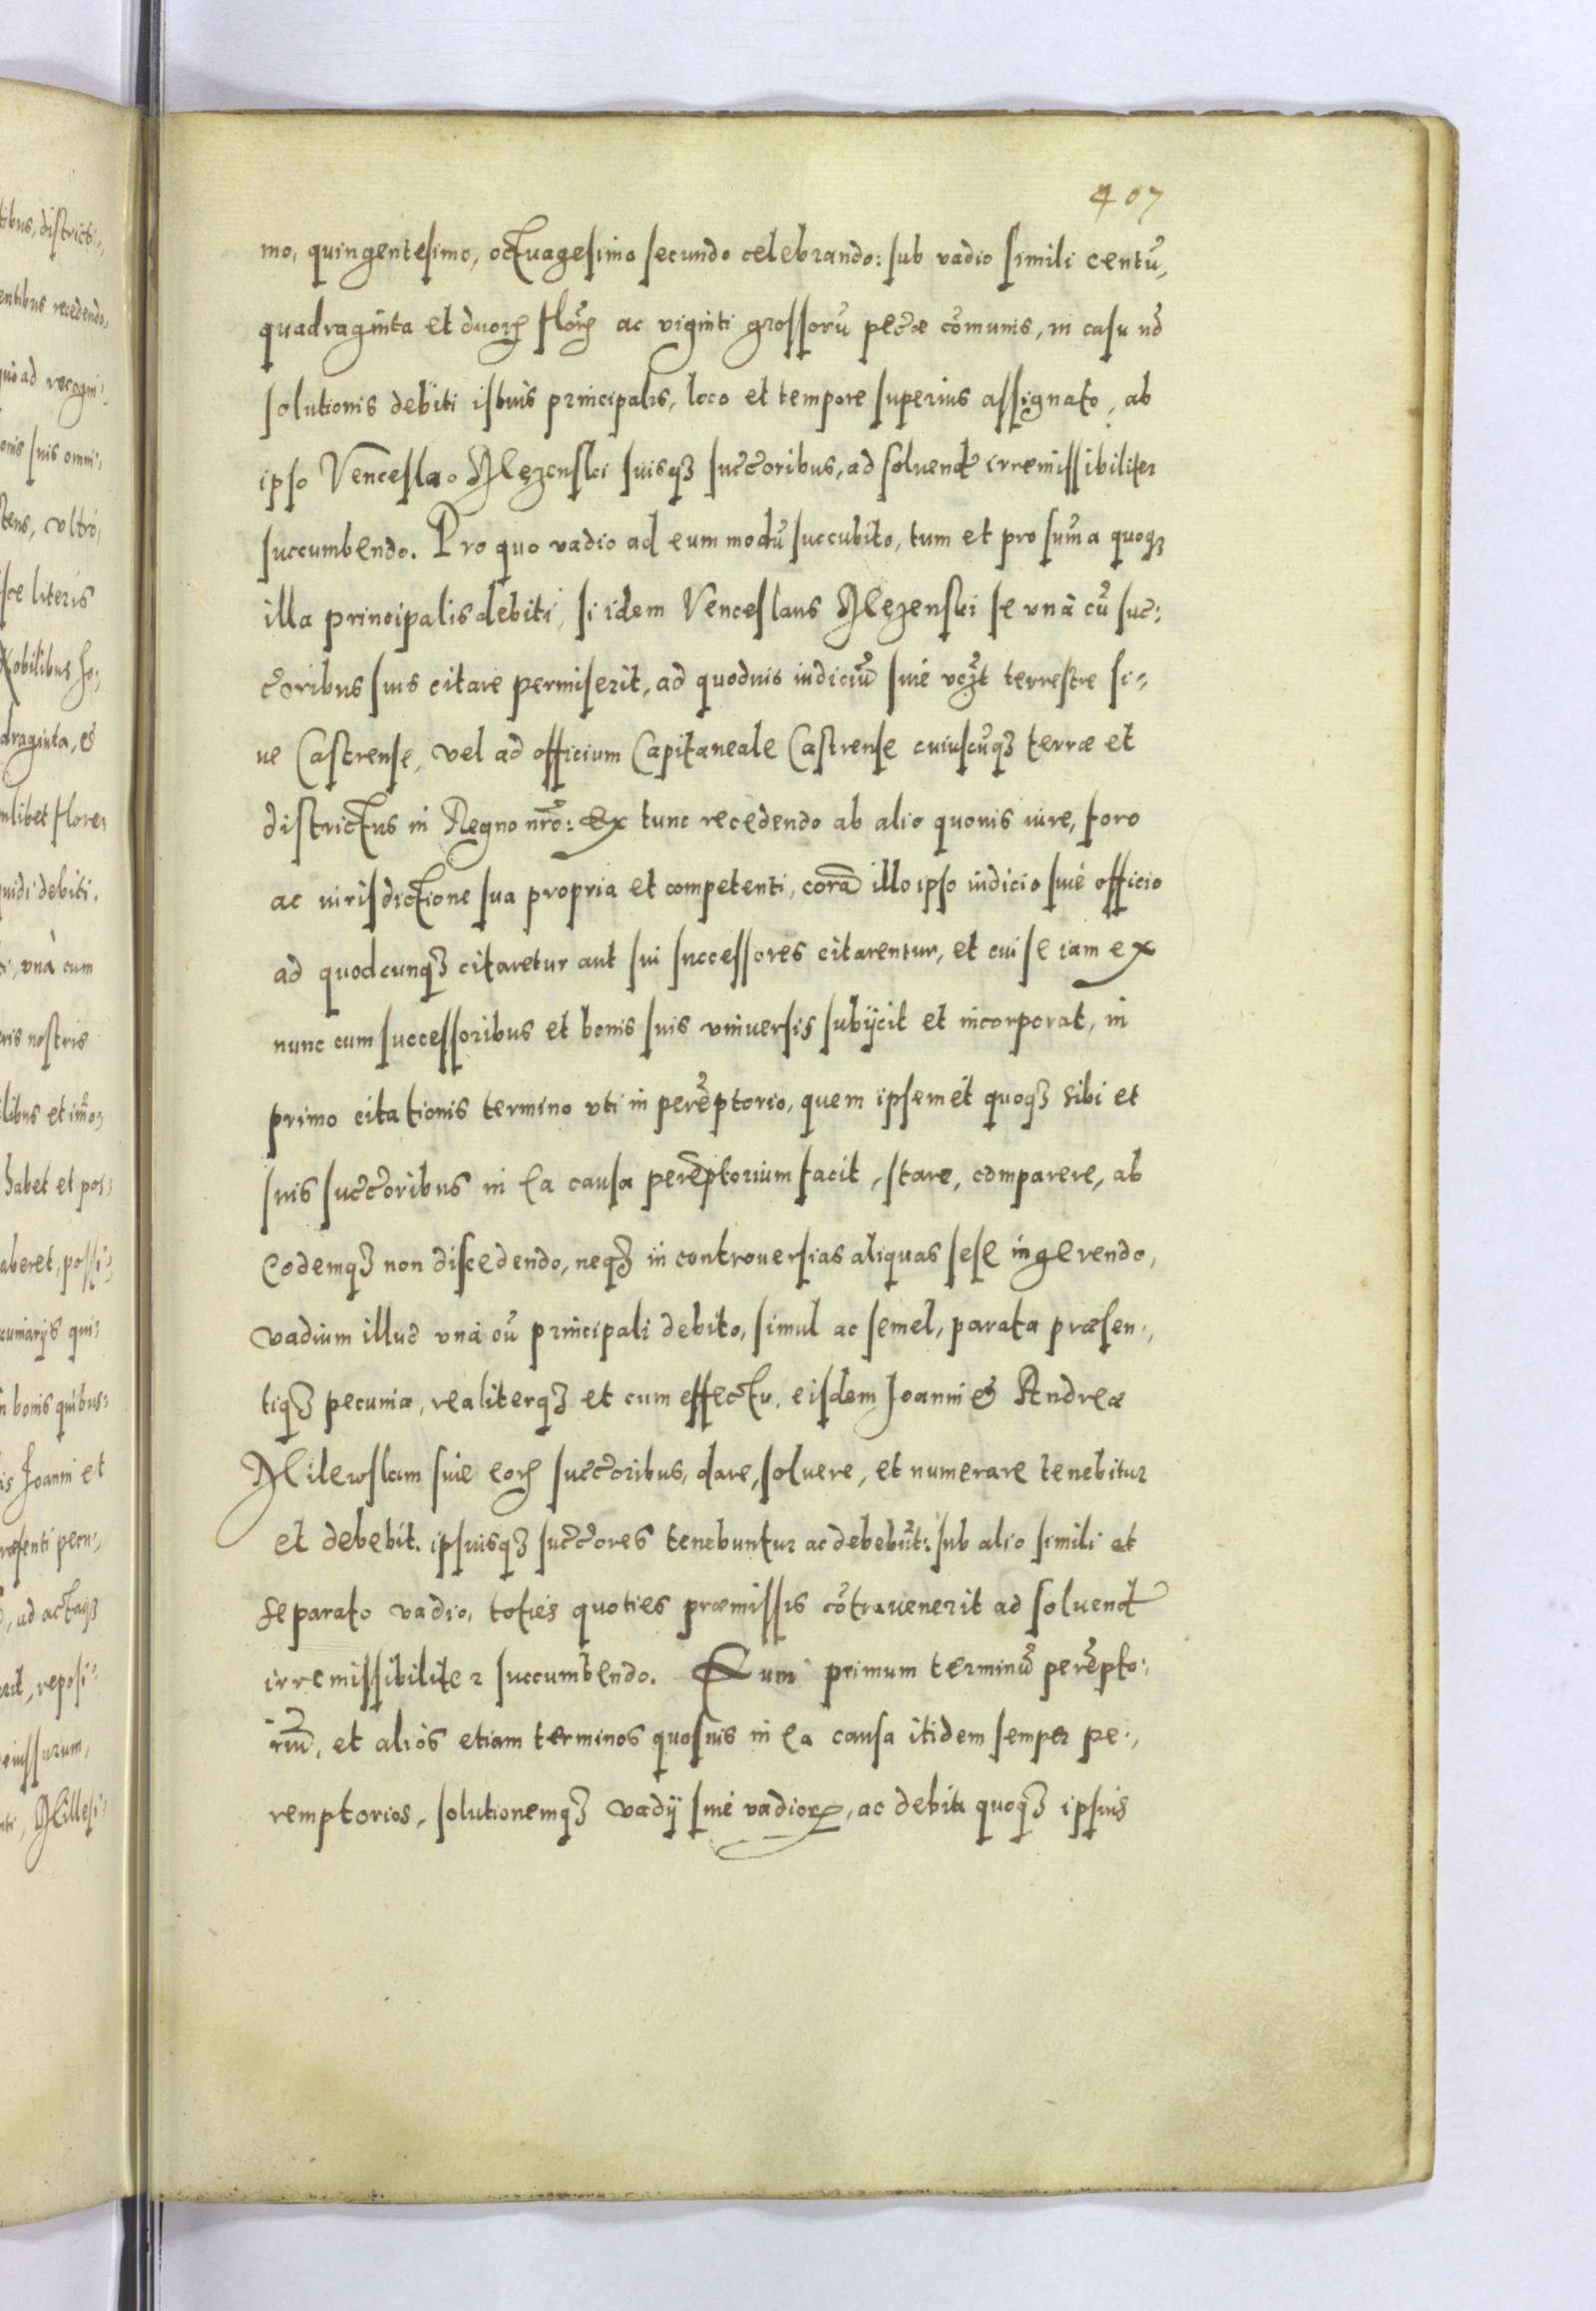 407
mo, quingentesimo, octuagesimo secundo celebrando: sub vadio simili centū,
quadraginta et duoꝝ floꝝ ac viginti grossorū pectæ cōmunis, in casu nō
solutionis debiti istius principalis, loco et tempore superius assignato, ab
ipso Venceslao suisqꝫ succoribus, ad soluend irremissibiliter
succumbendo. Pro quo vadio ad eum modū succubito, tum et pro sum̄a quoqꝫ
illa principalis debiti, si idem Venceslaus se vnà cū suc:
coribus suis citare permiserit, ad quoduis iudiciū siue terrestre si-
ue Castrense, vel ad officium Capitaneale Castrense cuiuscūqꝫ terræ et
districtus in Regno nrō: Ex tunc recedendo ab alio quouis iure, foro
ac iurisdictione sua propria et competenti, corā illo ipso iudicio siué officio
ad quodcunqꝫ citaretur aut sui successores citarentur, et cui se iam ex
nunc cum successoribus et bonis suis vniuersis subijcit et incorporat, in
primo citationis termino vti in perēptorio, quem ipsemét quoqꝫ sibi et
suis succoribus in ea causa perēptorium facit, stare, comparere, ab
eodemqꝫ non discedendo, neqꝫ in controuersias aliquas sese ingerendo,
vadium illud vnà cū principali debito, simul ac semel, parata præsen-,
tiqꝫ pecunia, realiterqꝫ et cum effectu, eisdem Joanni & Andreæ
siue eoꝝ succoribus, dare, soluere, et numerare tenebitur
et debebit. ipsiusqꝫ succores tenebuntur ac debebūt: sub alio simili et
separato vadio, toties quoties præmissis cōtrauenerit ad soluend
irremissibiliter succumbendo. Eum primum terminū perēpto:,
riū, et aliòs etiam terminos quosuis in ea causa itidem semper pe-,
remptorios, solutionemqꝫ vadij siué vadioꝝ, ac debiti quoqꝫ ipsius